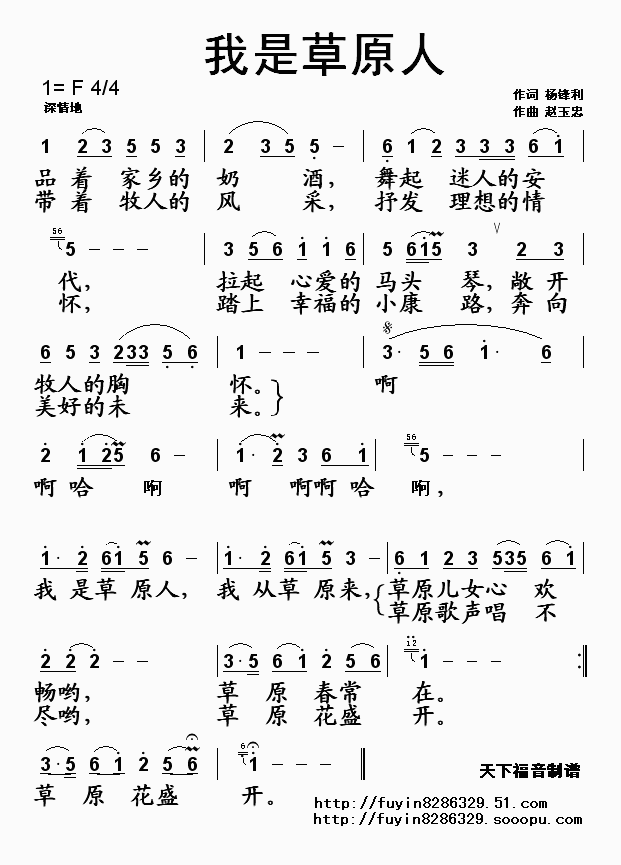 我是草原人
1= F 4/4
深情地
作词 杨锋利
作曲 赵玉忠
1 2 3 5 5 3 2 3 5 5 6 1 2 3 3 3 6 1
品着 家乡的 奶 酒, 舞起 迷人的安
带着 牧人的 风 采, 抒发 理想的情
56 5 - - - 3 5 6 1 1 6 5 6 1 5 3 V 2 3
代, 拉起 心爱的 马头 琴, 敞开
怀, 踏上 幸福的 小康 路, 奔向
6 5 3 2 3 3 5 6 1 - - 3· 5 6 1· 6
牧人的胸 怀。 啊
美好的未 来。
2 1 2 5 6 - 1· 2 3 6 1 56 5 - -
啊 哈 啊 啊 啊啊 哈 啊,
1· 2 6 1 5 6 - 1· 2 6 1 5 3 - 6 1 2 3 5 3 5 6 1
我 是草 原人, 我 从草 原来, 草原儿女心 欢
草原歌声唱 不
2 2 2 - - 3· 5 6 1 2 5 6 12 1 - -
畅哟, 草 原 春常 在。
尽哟, 草 原 花盛 开。
3· 5 6 1 2 5 6 56 1 - -
草 原 花盛 开。
天下福音制谱
http://fuyin8286329.51.com
http://fuyin8286329.sooopu.com